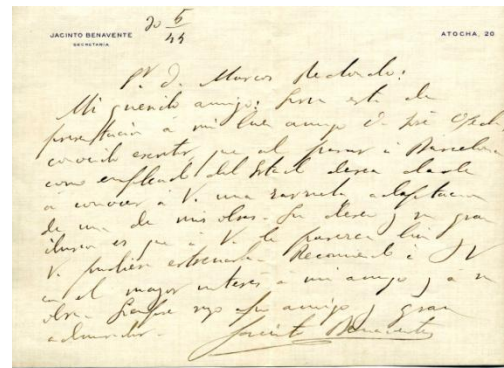 JACINTO BENAVENTE
SECRETARÍA
ATOCHA, 20
30 5/44
Sr. D. Marcos Redondo:
Mi querido amigo: Sirva esta de
presentación a mi buen amigo D. José
conocido escritor, que al pasar á Barcelona
como empleado del Estado desea darle
á conocer á V. una zarzuela adaptación
de una de mis obras. Su deseo y su gran
ilusion es que á V. le parezca bien
V. pudiera estrenarla. Recomiendo á V
con el mayor interés á mi amigo y á su
obra. Siempre suyo afmo amigo y gran
admirador.
Jacinto Benavente